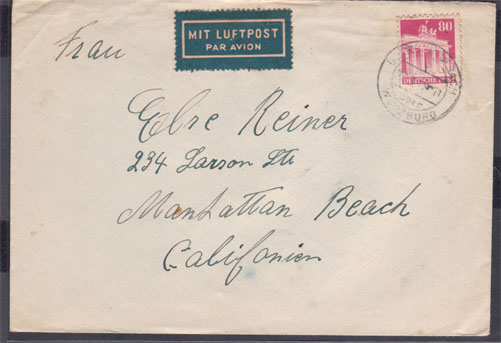 MIT LUFTPOST
PAR AVION
80
DEUTSCHE
über
WÜRZBURG
Frau
Else Reiner
234 Larson Str
Manhattan Beach
Califonien